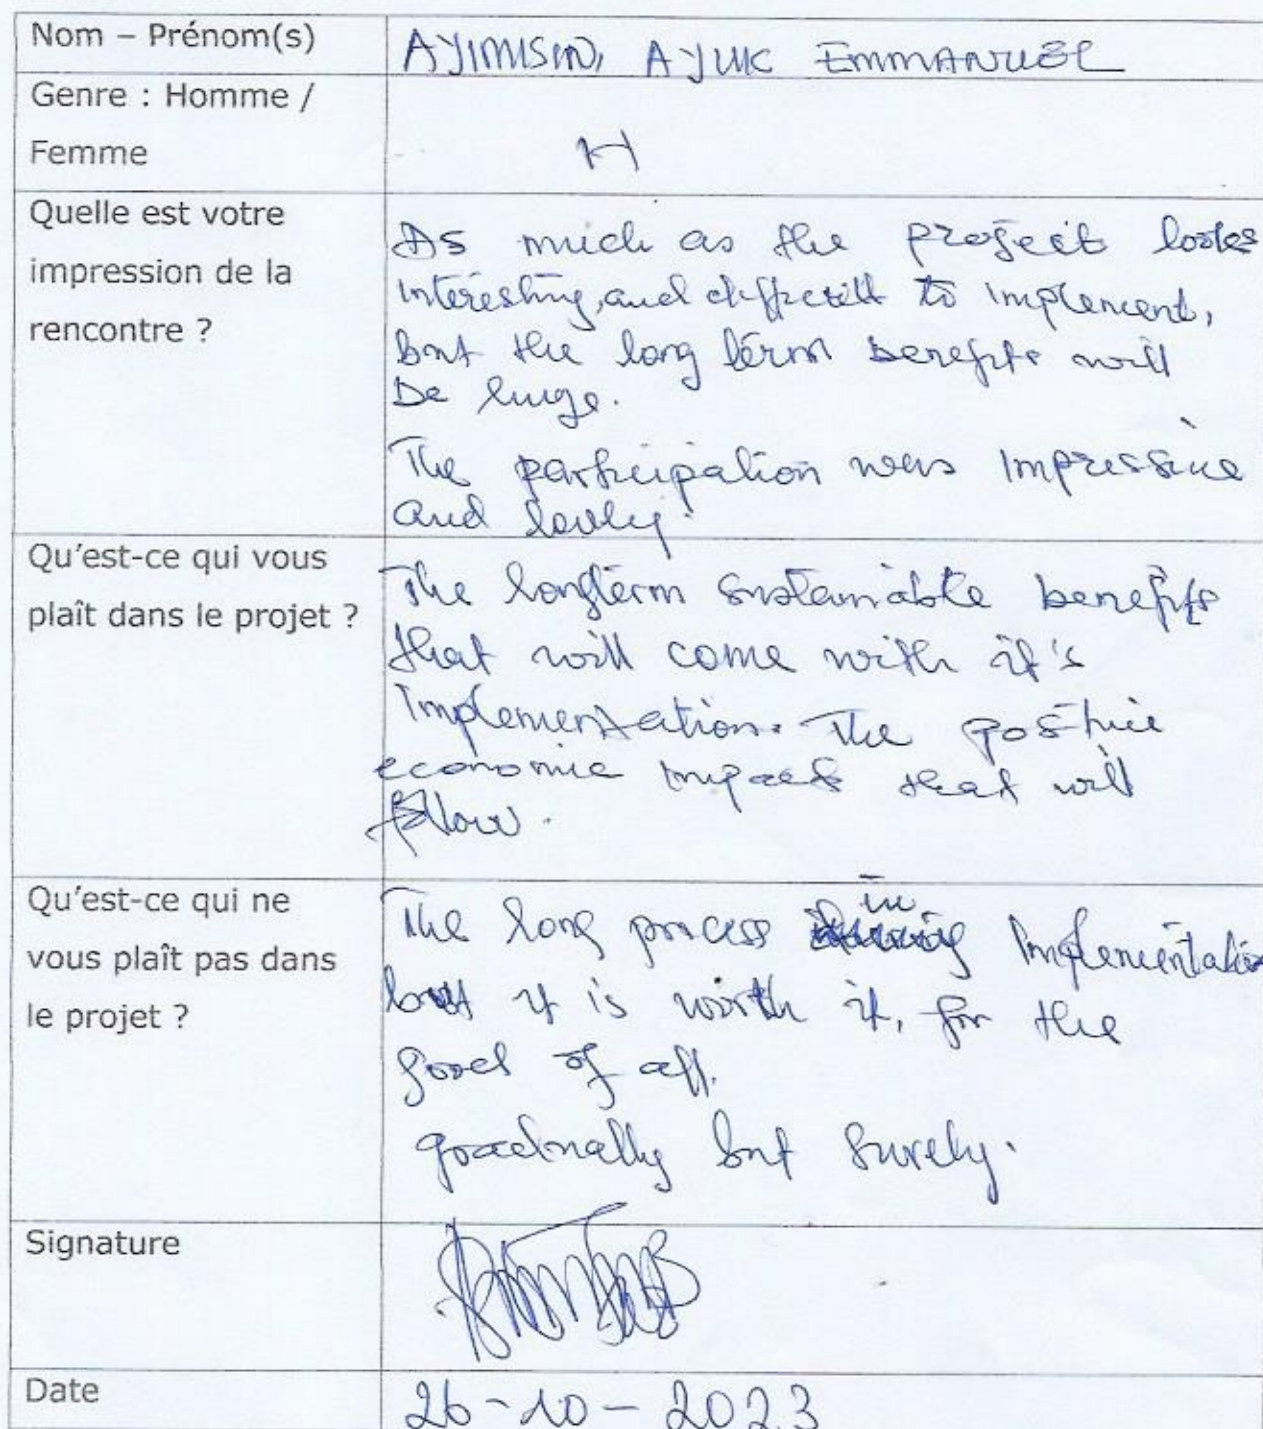 Nom – Prénom(s)
AYIMISIN, AYUK EMMANUEL
Genre : Homme /
Femme
H
Quelle est votre
impression de la
rencontre ?
As much as the project looks
interesting, and difficult to implement,
but the long term benefits will
be huge.
The participation was impressive
and lovely.
Qu'est-ce qui vous
plaît dans le projet ?
The longterm sustainable benefits
that will come with it's
Implementation. The positive
economic impact that will
follow.
Qu'est-ce qui ne
vous plaît pas dans
le projet ?
The long process in Implementation
but it is worth it, for the
good of all.
gradually but surely.
Signature
Date
26-10-2023